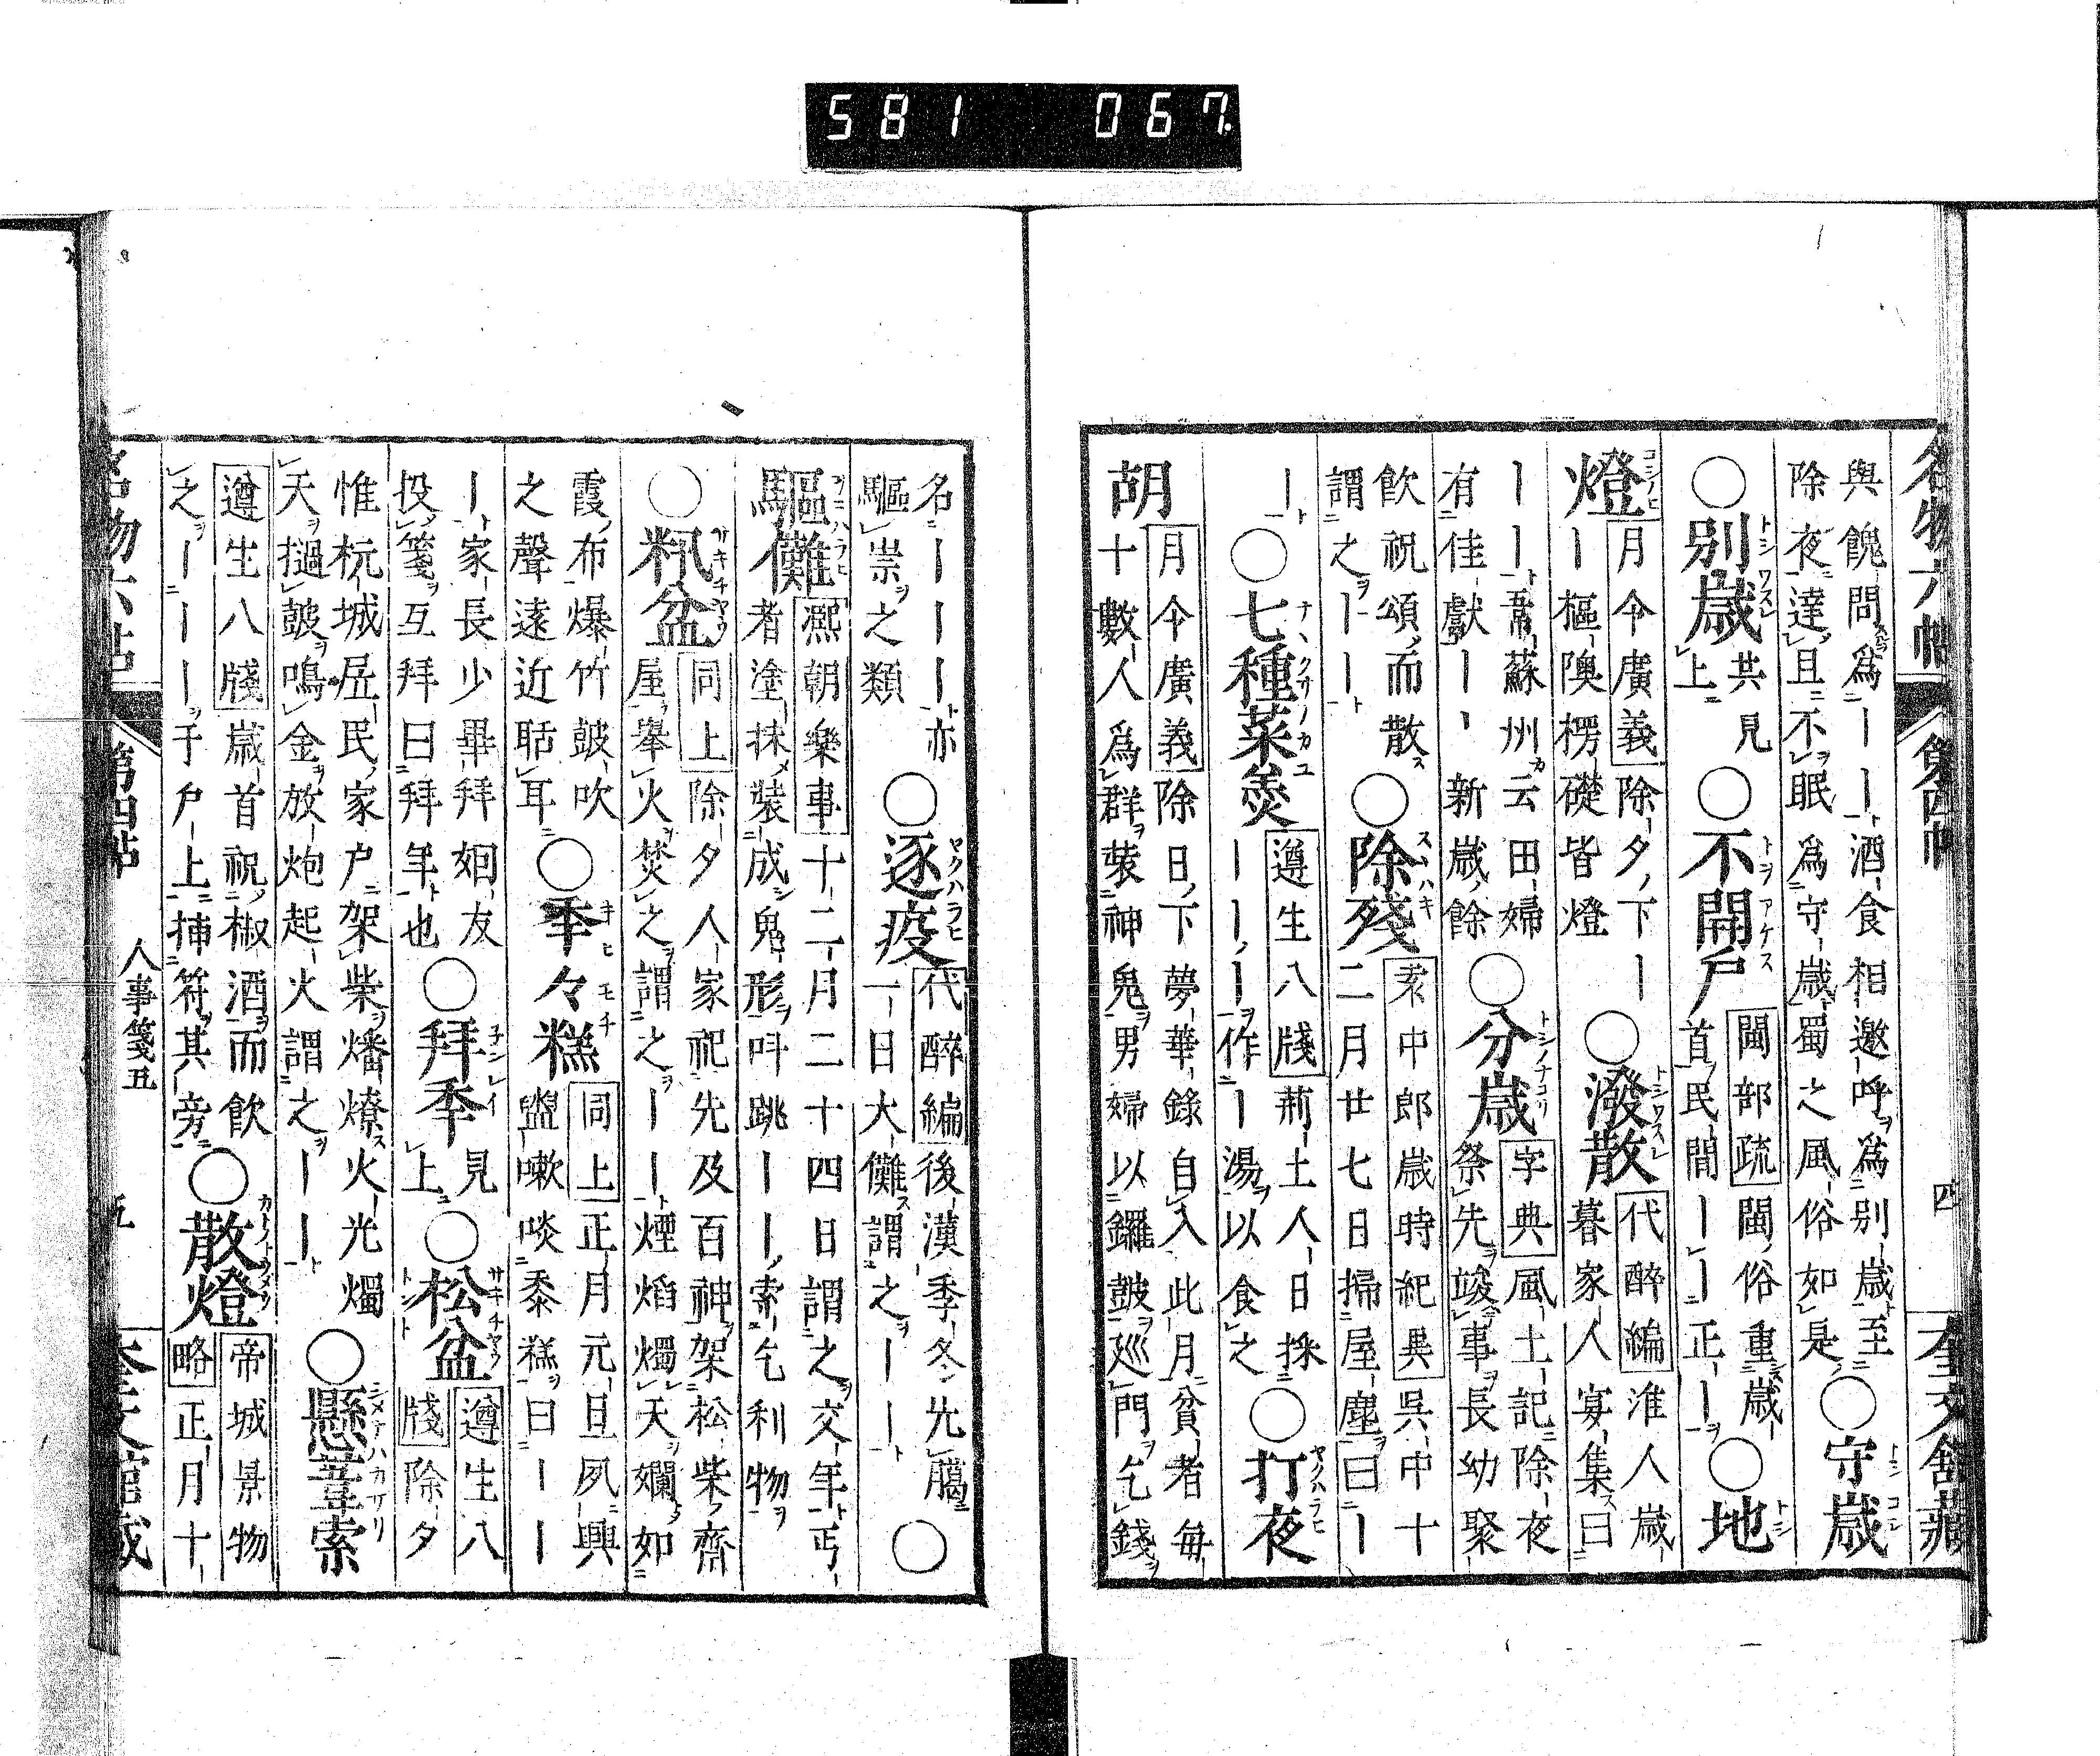 581 067
名物六帖 第四帖 四 奎文館藏
與餽問爲ーー酒食相邀呼爲別歲至
除夜達且不眠爲守歲蜀之風俗如是
○守歲
○別歲
共見
上
○不開戶
閩部疏閩俗重歲
首民間ーー正ー
○地
燈
月令廣義除夕下ー
ー樞隩楞礎皆燈
○潑散
代醉編淮人歲
暮家人宴集曰
ーー
韋蘇州云田婦
有佳獻ーー新歲餘
○分歲
字典風土記除夜
祭先竣事長幼聚
飲祝頌而散
謂之ーー
○除殘
袁中郎歲時紀異吳中十
二月廿七日掃屋塵曰ー
ー
○七種菜羹
遵生八牋荊土人日採
ーーー作ー湯以食之
○打夜
胡
月令廣義除日下夢華錄自入此月貧者每
十數人爲群裝神鬼男婦以鑼鼓巡門乞錢
名ーーー亦
驅祟之類
○逐疫
代醉編後漢季冬先臘
一日大儺謂之ーー
○
驅儺
熙朝樂事十二月二十四日謂之交年丐
者塗抹裝成鬼形叫跳ーー索乞利物
○籸盆
同上除夕人家祀先及百神架松柴齊
屋舉火焚之謂之ーー煙焰燭天爛如
霞布爆竹鼓吹
之聲遠近聒耳
○年々糕
同上正月元旦夙興
盥嗽啖黍糕曰ーー
ー家長少畢拜姻友
投箋互拜曰拜年也
○拜年
見
上
○松盆
遵生八
牋除夕
惟杭城居民家戶架柴燔燎火光燭
天撾鼓鳴金放炮起火謂之ーー
○懸葦索
遵生八牋歲首祝椒酒而飲
之ーーー于戶上揷符其旁
○散燈
帝城景物
略正月十
名物六帖 第四帖 人事箋五 五 奎文館藏